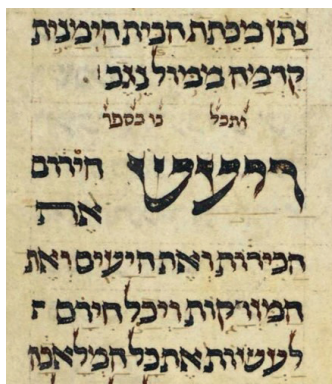 נתן מכתף הבית הימנית
קדמה ממול נגב
ותכל כו בספר
ויעש חירום
את
הכירות ואת היעים ואת
המזרקות ויכל חירם
לעשות את כל המלאכה